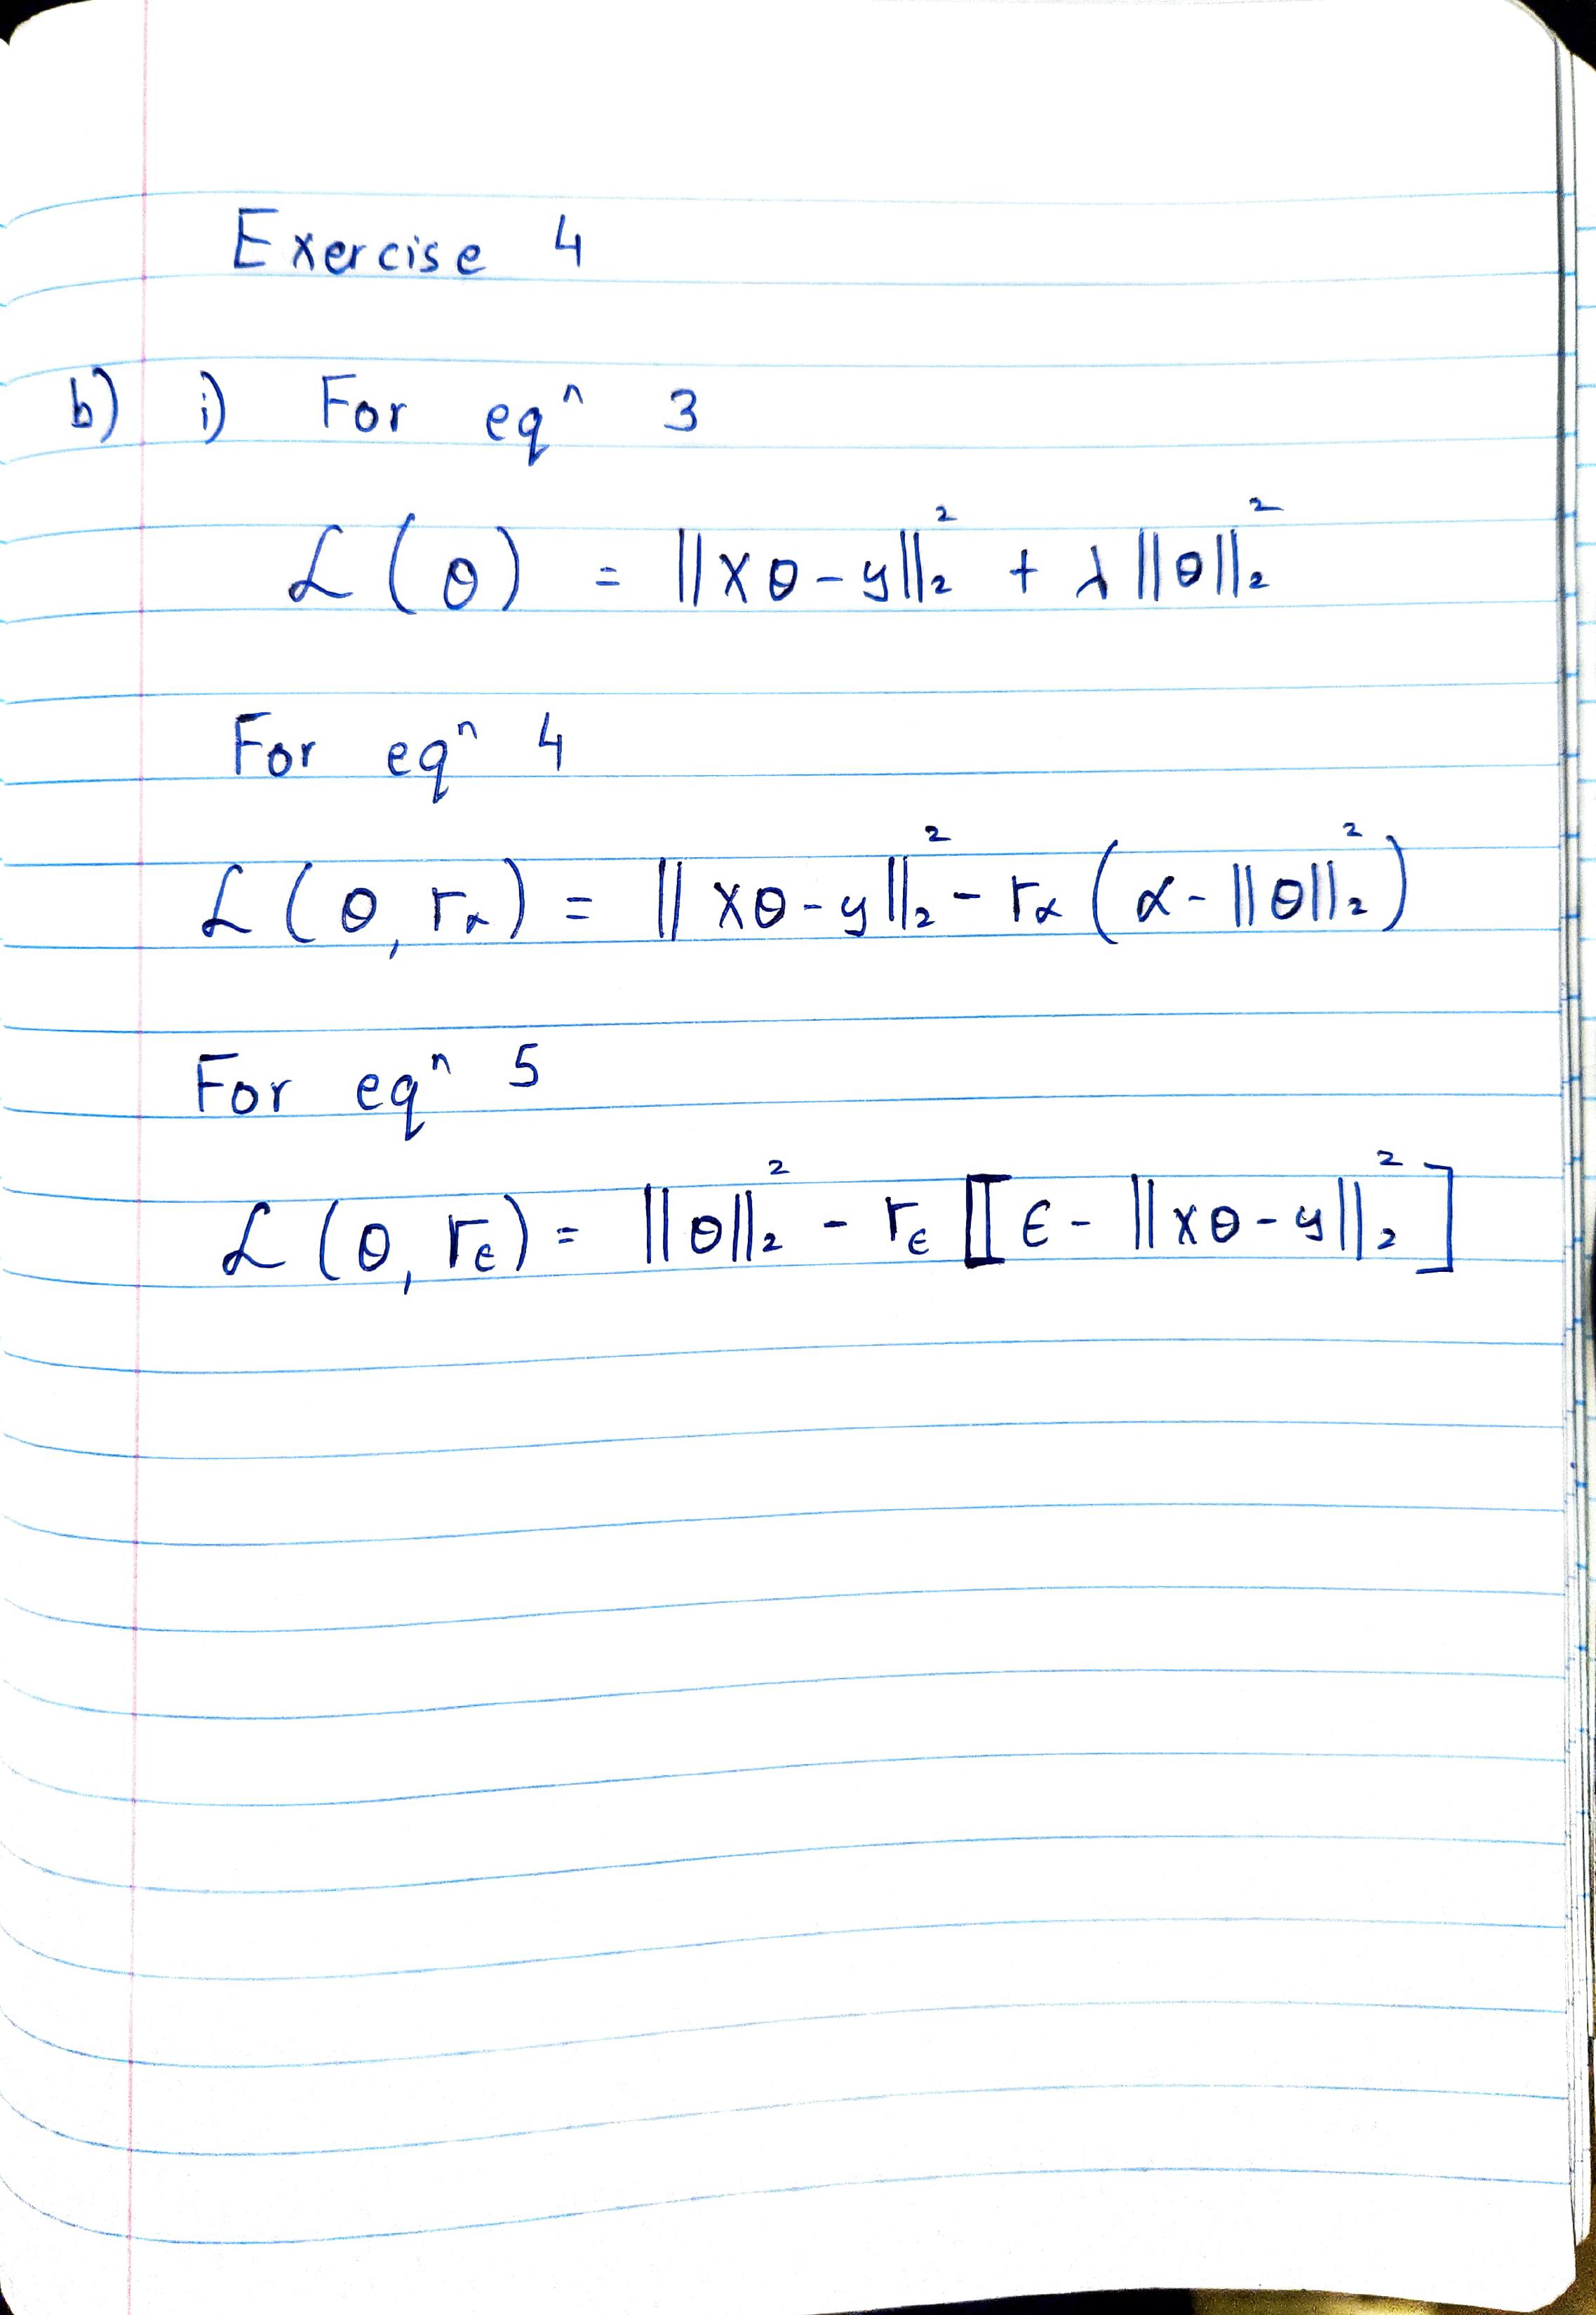 Exercise 4
b) i) For eqⁿ 3
ℒ(θ) = ||Xθ-y||₂² + λ||θ||₂²
For eqⁿ 4
ℒ(θ, r_α) = ||Xθ-y||₂² - r_α(α-||θ||₂²)
For eqⁿ 5
ℒ(θ, r_ϵ) = ||θ||₂² - r_ϵ[ϵ-||Xθ-y||₂²]